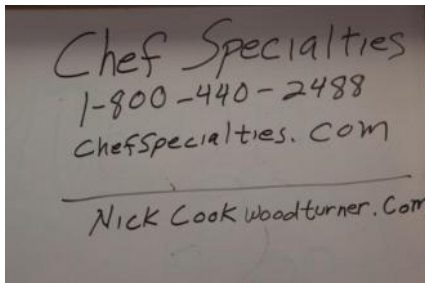 Chef Specialties
1-800-440-2488
Chefspecialties.com
Nick Cook woodturner.com